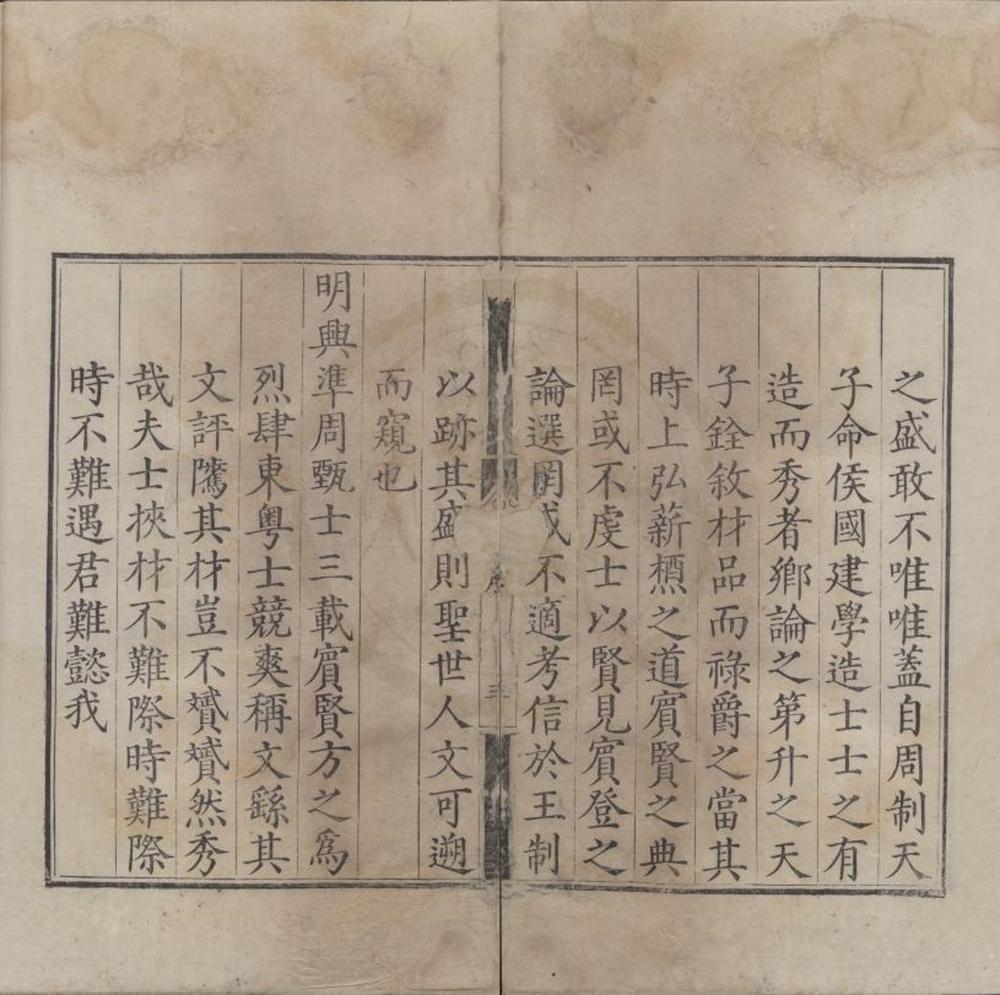 之盛敢不唯唯蓋自周制天
子命侯國建學造士士之有
造而秀者鄉論之第升之天
子銓敘材品而祿爵之當其
時上弘薪槱之道賓賢之典
罔或不虔士以賢見賓登之
論選罔或不適考信於王制
序
三
以跡其盛則聖世人文可遡
而窺也
明興準周甄士三載賓賢方之爲
烈肆東粤士競奭稱文繇其
文評隲其材豈不贇贇然秀
哉夫士挾材不難際時難際
時不難遇君難懿我